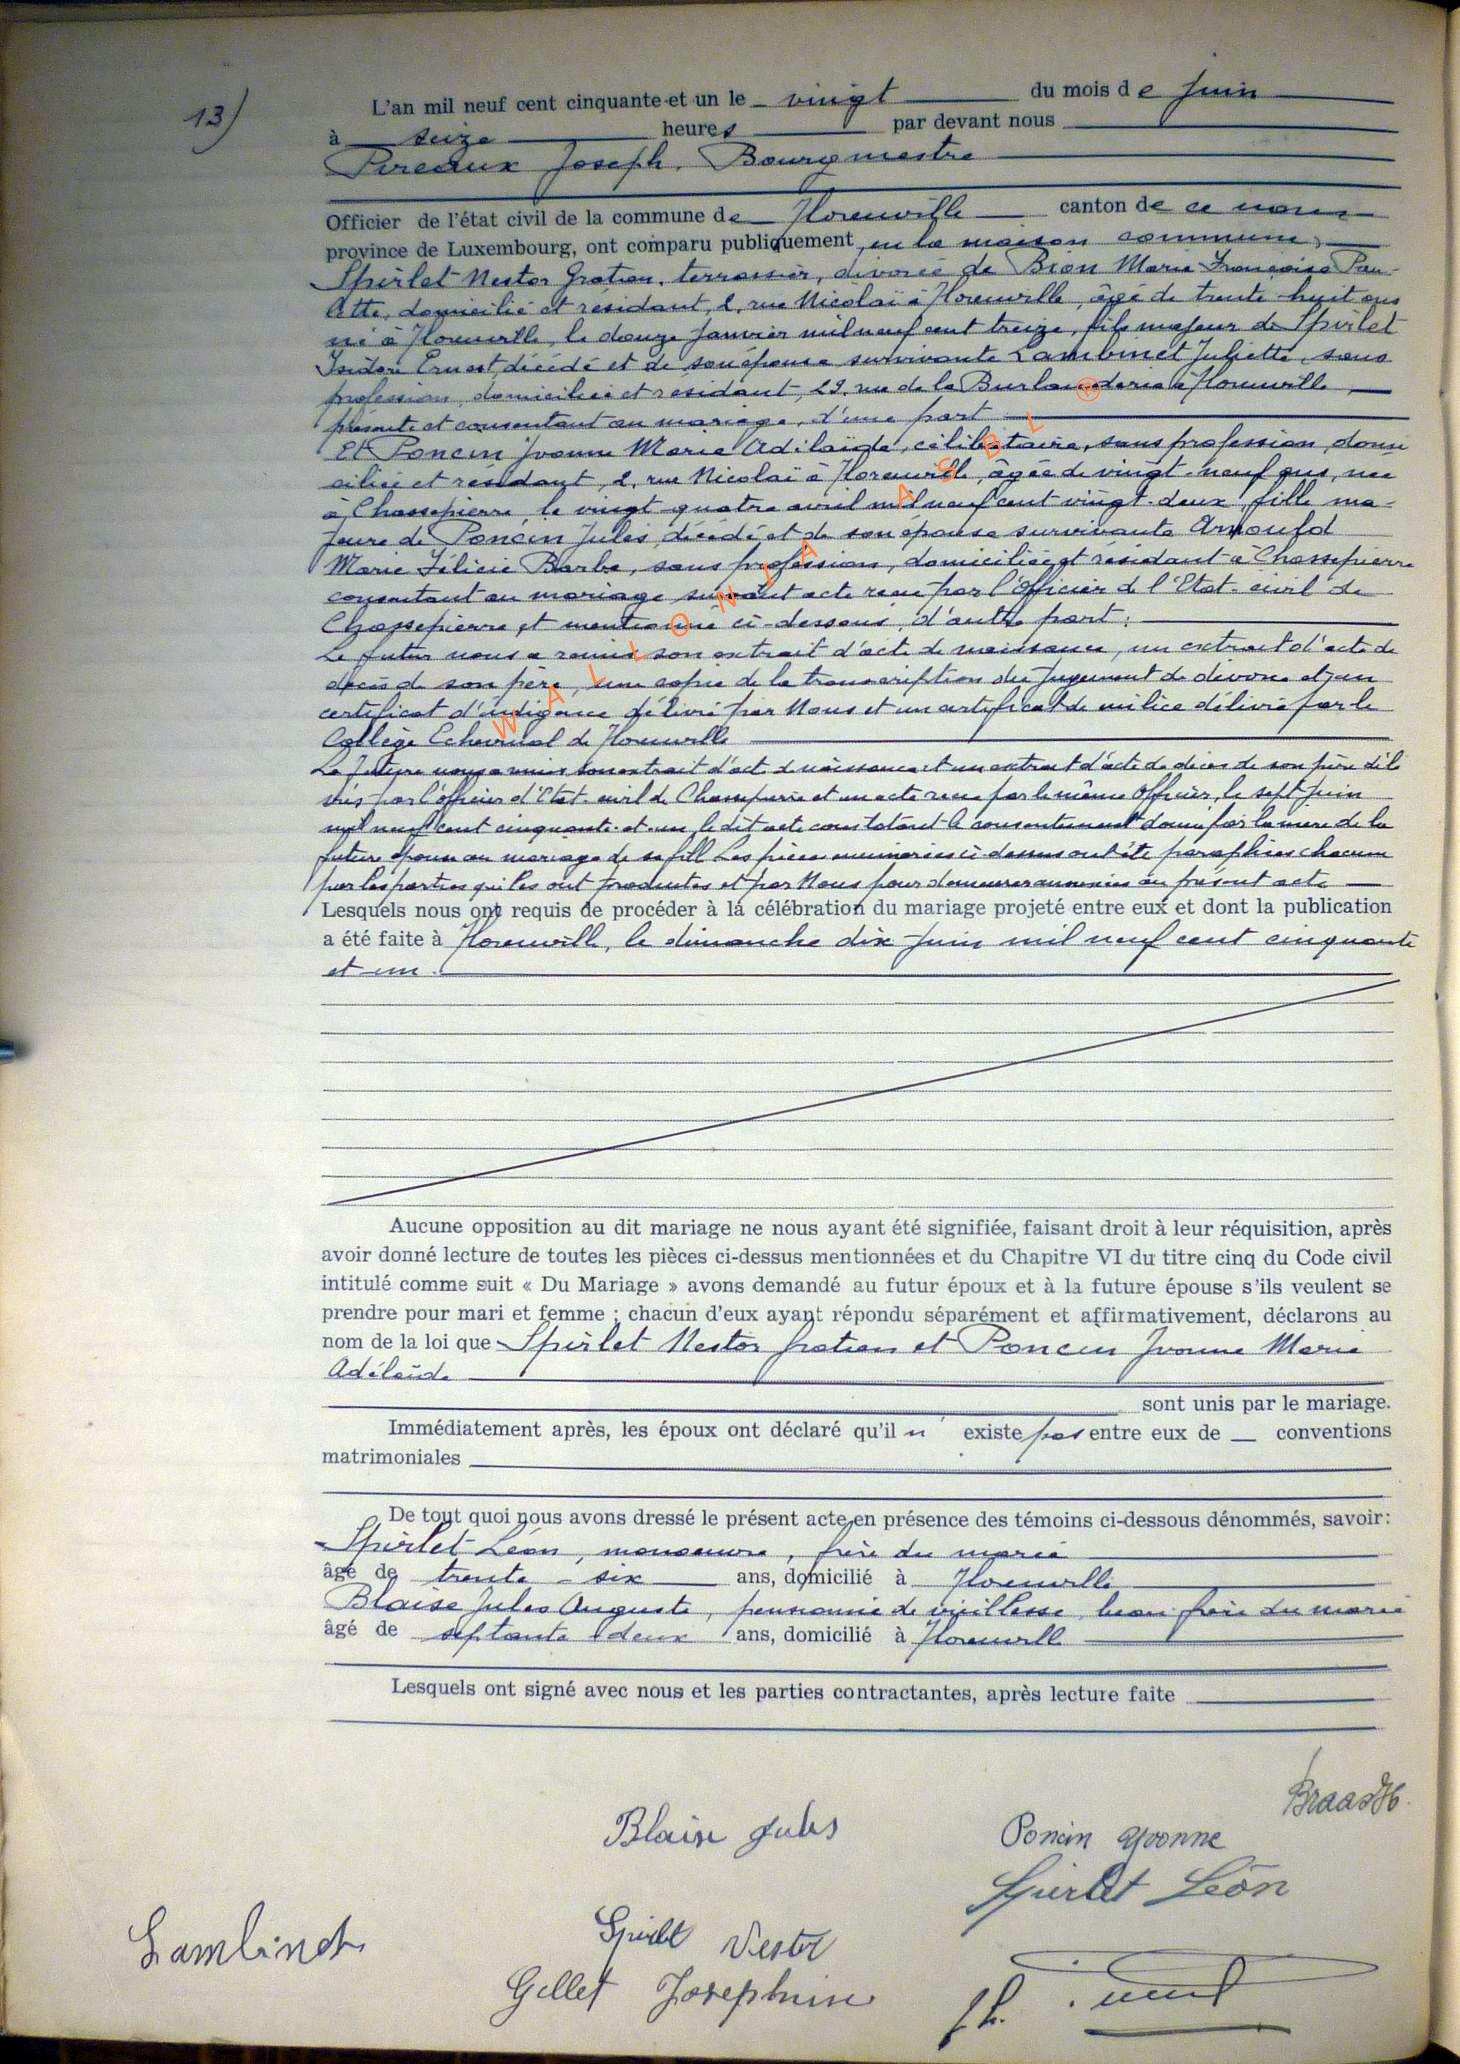 13)
L'an mil neuf cent cinquante et un le vingt du mois de Juin
à seize heures par devant nous
Pireaux Joseph. Bourgmestre
Officier de l'état civil de la commune de Florenville canton de ce nom
province de Luxembourg, ont comparu publiquement en la maison commune,
Spirlet Nestor Gratien, terrassier, divorcé de Bion Marie Françoise Pau-
lette, domicilié et résidant, 2, rue Nicolaï à Florenville, âgé de trente-huit ans
né à Florenville, le douze Janvier mil neuf cent treize, fils majeur de Spirlet
Isidore Ernest, décédé et de son épouse survivante Lambinet Juliette, sans
profession, domiciliée et résidant, 29, rue de la à Florenville,
présente et consentant au mariage, d'une part
Et Poncin Yvonne Marie Adélaïde, célibataire, sans profession, domi
ciliée et résidant, 2, rue Nicolaï à Florenville, âgée de vingt-neuf ans, née
à Chassepierre, le vingt-quatre avril mil neuf cent vingt-deux, fille ma-
jeure de Poncin Jules, décédé et de son épouse survivante Arnould
Marie Félicie Barbe, sans profession, domiciliée et résidant à Chassepierre
consentant au mariage suivant acte reçu par l'Officier de l'Etat-civil de
Chassepierre, et mentionné ci-dessous, d'autre part:
Le futur nous a remis son extrait d'acte de naissance, un extrait d'acte de
décès de son père, une copie de la transcription du Jugement de divorce et un
certificat d'indigence délivré par Nous et un certificat de milice délivré par le
Collège Echevinal de Florenville
La future nous a remis son extrait d'acte de naissance et un extrait d'acte de décès de son père déli
vrés par l'officier d'Etat-civil de Chassepierre et un acte reçu par le même Officier, le sept Juin
mil neuf cent cinquante-et-un, le dit acte constatant le consentement donné par la mère de la
future épouse au mariage de sa fille Les pièces énumérées ci-dessus ont été paraphées chacune
par les parties qui les ont produites et par Nous pour demeurer annexées au présent acte
Lesquels nous ont requis de procéder à la célébration du mariage projeté entre eux et dont la publication
a été faite à Florenville, le dimanche dix Juin mil neuf cent cinquante
et-un.
Aucune opposition au dit mariage ne nous ayant été signifiée, faisant droit à leur réquisition, après
avoir donné lecture de toutes les pièces ci-dessus mentionnées et du Chapitre VI du titre cinq du Code civil
intitulé comme suit « Du Mariage » avons demandé au futur époux et à la future épouse s'ils veulent se
prendre pour mari et femme ; chacun d'eux ayant répondu séparément et affirmativement, déclarons au
nom de la loi que Spirlet Nestor Gratien et Poncin Yvonne Marie
Adélaïde
sont unis par le mariage.
Immédiatement après, les époux ont déclaré qu'il n' existe pas entre eux de conventions
matrimoniales
De tout quoi nous avons dressé le présent acte en présence des témoins ci-dessous dénommés, savoir:
Spirlet Léon, manœuvre, frère du marié
âgé de trente-six ans, domicilié à Florenville
Blaise Jules Auguste, pensionné de vieillesse, beau-frère du marié
âgé de septante deux ans, domicilié à Florenville
Lesquels ont signé avec nous et les parties contractantes, après lecture faite
Blaise Jules
Poncin Yvonne
Spirlet Léon
Lambinet
Spirlet Nestor
Gillet Josephine
WALLONIA ASBL ®